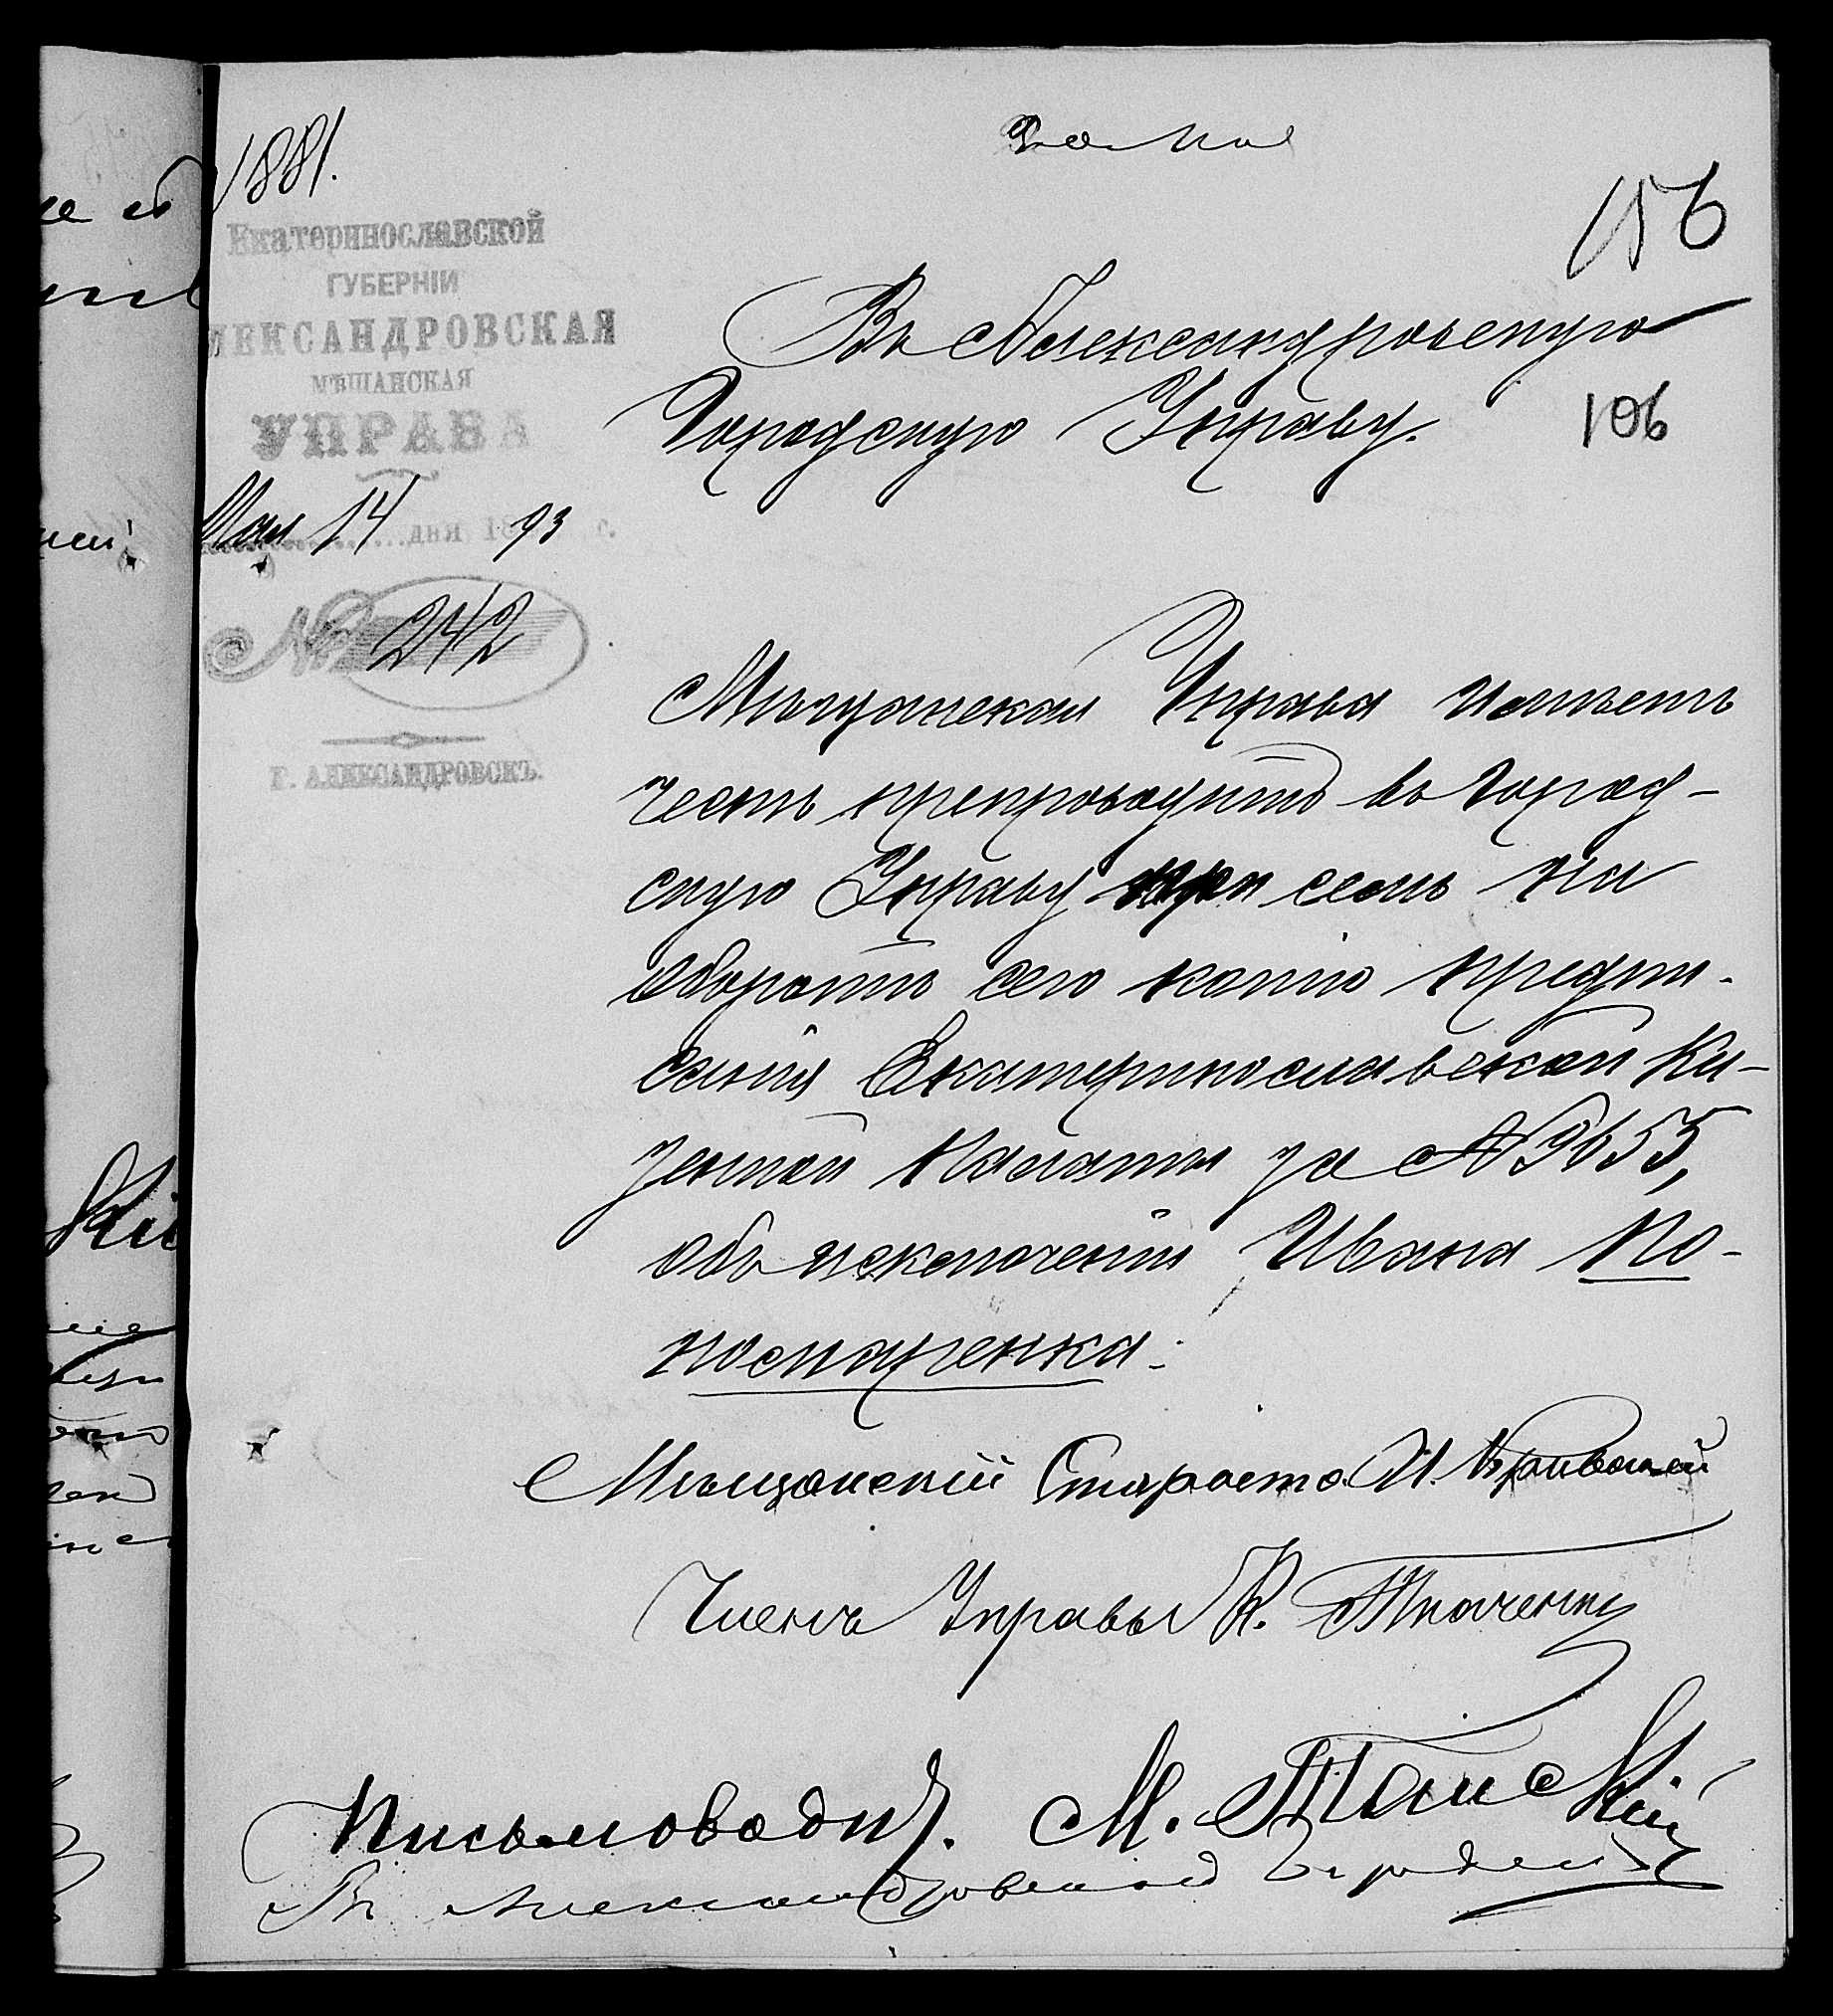 1881.
156
Екатеринославской
ГУБЕРНІИ
ЛЕКСАНДРОВСКАЯ
МѢЩАНСКАЯ
УПРАВА
Мая 14 дня 1893 г.
№ 242
Г. АЛЕКСАНДРОВСКЪ.
Въ Александровскую
Городскую Управу.
106
Мѣщанская Управа имѣетъ
честь препроводить въ Город-
скую Управу при семъ на
оборотѣ сего копію предпи-
санія Екатеринославской Ка-
зенной Палаты за № 9655,
объ исключеніи Ивана По-
номаренка.
Мѣщанскій Староста И.
Членъ Управы К. Ткаченко
Письмовод. М.
Въ Александровской